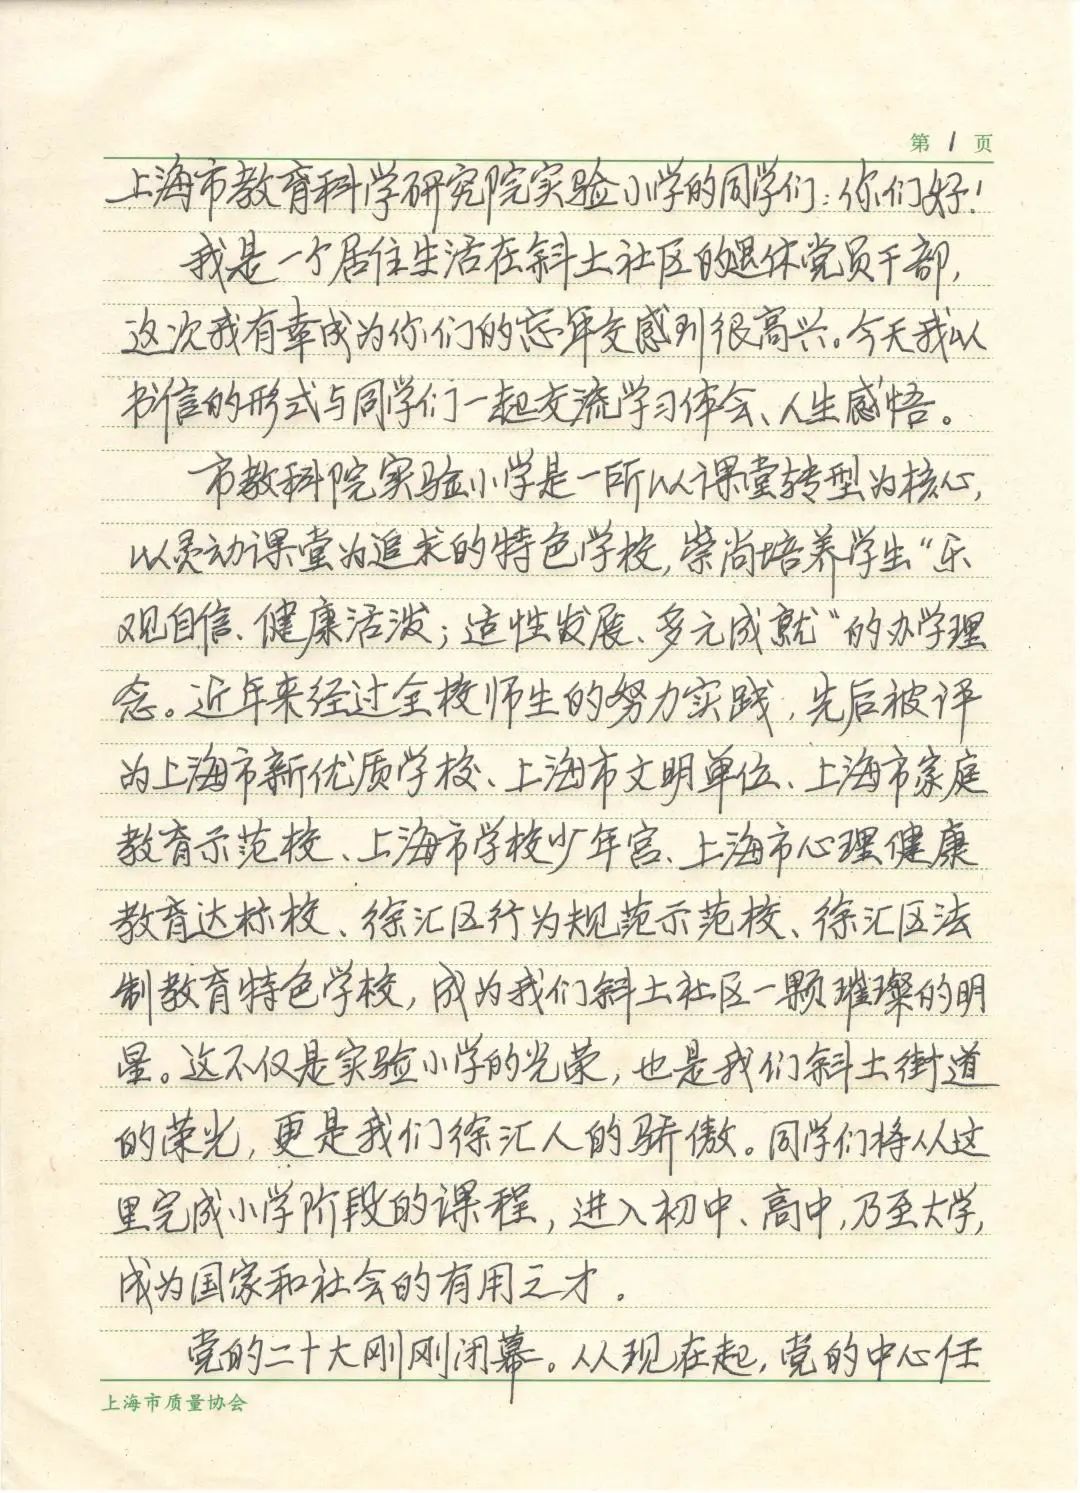 第 1 页
上海市教育科学研究院实验小学的同学们：你们好！
我是一个居住生活在斜土社区的退休党员干部，
这次我有幸成为你们的忘年交感到很高兴。今天我以
书信的形式与同学们一起交流学习体会、人生感悟。
市教科院实验小学是一所以课堂转型为核心，
以灵动课堂为追求的特色学校，崇尚培养学生“乐
观自信、健康活泼；适性发展、多元成就”的办学理
念。近年来经过全校师生的努力实践，先后被评
为上海市新优质学校、上海市文明单位、上海市家庭
教育示范校、上海市学校少年宫、上海市心理健康
教育达标校、徐汇区行为规范示范校、徐汇区法
制教育特色学校，成为我们斜土社区一颗璀璨的明
星。这不仅是实验小学的光荣，也是我们斜土街道
的荣光，更是我们徐汇人的骄傲。同学们将从这
里完成小学阶段的课程，进入初中、高中，乃至大学，
成为国家和社会的有用之才。
党的二十大刚刚闭幕。从现在起，党的中心任
上海市质量协会